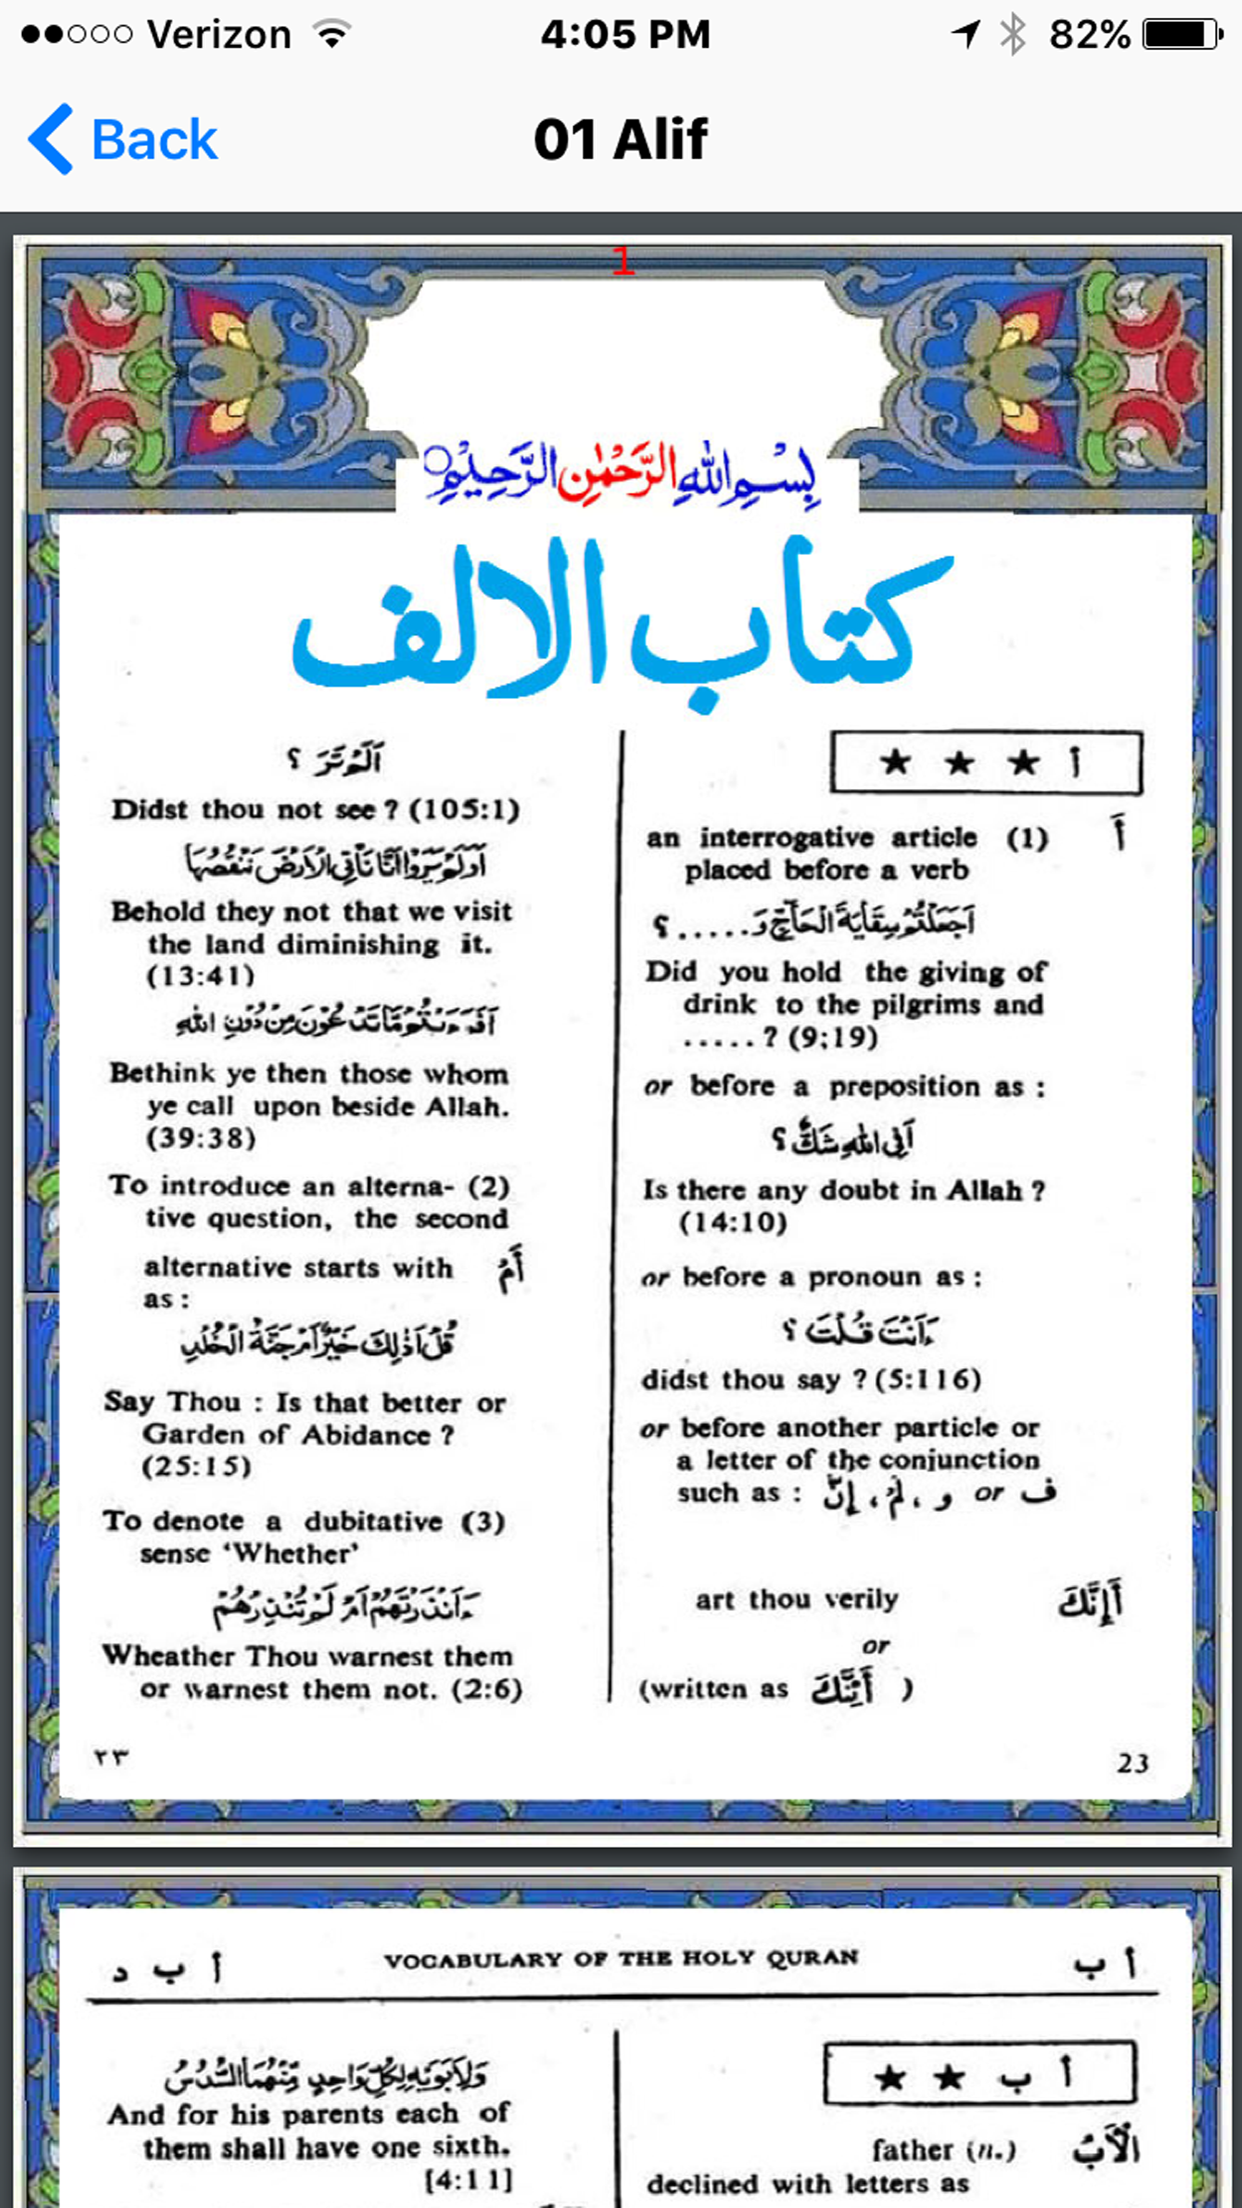 Verizon 4:05 PM 82%
Back 01 Alif
1
بِسْمِ اللهِ الرَّحْمٰنِ الرَّحِيْمِ
كتاب الالف
أ ★ ★ ★
أَ an interrogative article (1)
placed before a verb
اَجَعَلْتُمْ سِقَايَةَ الْحَآجِّ وَ.....؟
Did you hold the giving of
drink to the pilgrims and
.....? (9:19)
or before a preposition as :
اَفِى اللهِ شَكٌّ ؟
Is there any doubt in Allah ?
(14:10)
or before a pronoun as :
ءَاَنْتَ قُلْتَ ؟
didst thou say ? (5:116)
or before another particle or
a letter of the conjunction
such as : ف or و ، لَمْ ، إِنَّ
أَإِنَّكَ art thou verily
or
(written as أَئِنَّكَ )
اَلَمْ تَرَ ؟
Didst thou not see ? (105:1)
اَوَلَمْ يَرَوْا اَنَّا نَأْتِى الْاَرْضَ نَنْقُصُهَا
Behold they not that we visit
the land diminishing it.
(13:41)
اَفَرَءَيْتُمْ مَّا تَدْعُوْنَ مِنْ دُوْنِ اللهِ
Bethink ye then those whom
ye call upon beside Allah.
(39:38)
To introduce an alterna- (2)
tive question, the second
alternative starts with أَمْ
as :
قُلْ اَذٰلِكَ خَيْرٌ اَمْ جَنَّةُ الْخُلْدِ
Say Thou : Is that better or
Garden of Abidance ?
(25:15)
To denote a dubitative (3)
sense ‘Whether’
ءَاَنْذَرْتَهُمْ اَمْ لَمْ تُنْذِرْهُمْ
Wheather Thou warnest them
or warnest them not. (2:6)
٢٣ 23
أ ب د VOCABULARY OF THE HOLY QURAN أ ب
أ ب ★ ★
اَلْاَبُ father (n.)
declined with letters as
وَلِاَبَوَيْهِ لِكُلِّ وَاحِدٍ مِّنْهُمَا السُّدُسُ
And for his parents each of
them shall have one sixth.
[4:11]